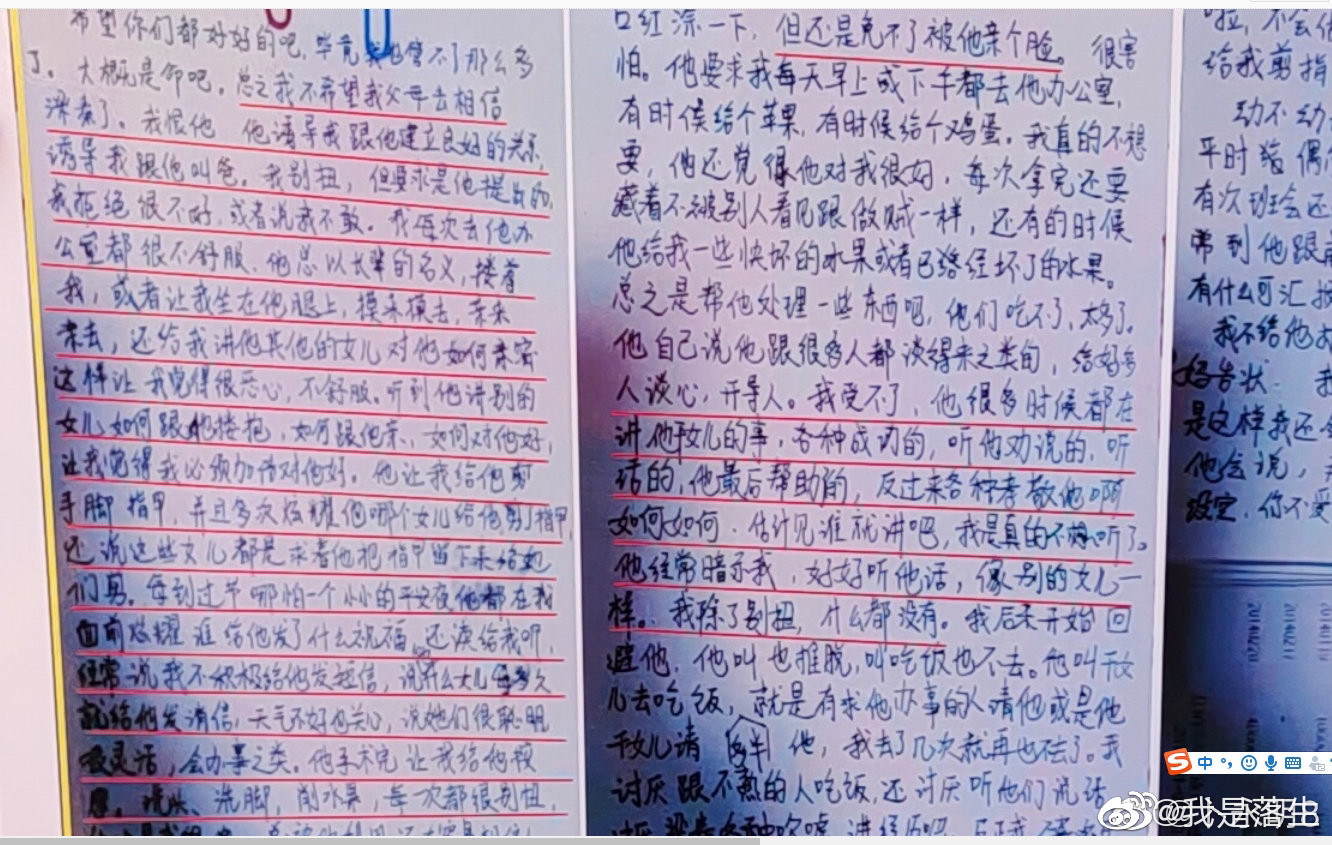 希望你们都好好的吧，毕竟我也管不了那么多
了。大概是命吧。总之我不希望我父母去相信
我恨他 他诱导我跟他建立良好的关系，
诱导我跟他叫爸。我别扭，但要求是他提出的，
我拒绝很不好，或者说我不敢。我每次去他办
公室都很不舒服，他总以长辈的名义，搂着
我，或者让我坐在他腿上，摸来摸去，亲来
亲去，还给我讲他其他的女儿对他如何亲密
这样让我觉得很恶心，不舒服。听到他讲别的
女儿如何跟他搂抱，如何跟他亲，如何对他好，
让我觉得我必须加倍对他好。他让我给他剪
手脚指甲，并且多次炫耀他哪个女儿给他剪了指甲
还说这些女儿都是求着他把指甲留下来给她
们剪。每到过节哪怕一个小小的平安夜他都在我
面前炫耀谁给他发了什么祝福，还读给我听，
经常说我不积极给他发短信，说什么女儿每多久
就给他发消信，天气不好也关心，说她们很聪明
很灵活，会办事之类。他手术完让我给他按
洗脚，削水果，每一次都很别扭，
口红涂一下，但还是免不了被他亲个脸。很害
怕。他要求我每天早上或下午都去他办公室，
有时候给个苹果，有时候给个鸡蛋。我真的不想
要，他还觉得他对我很好，每次拿完还要
藏着不被别人看见跟做贼一样，还有的时候
他给我一些快坏的水果或者已经坏了的水果。
总之是帮他处理一些东西吧，他们吃不了，太多了。
他自己说他跟很多人都谈得来之类的，给好多
人谈心，开导人。我受不了，他很多时候都在
讲他干女儿的事，各种成功的，听他劝说的，听
话的，他最后帮助的，反过来各种孝敬他啊
如何如何，估计见谁就讲吧，我是真的不想听了。
他经常暗示我，好好听他话，像别的女儿一
样。我除了别扭，什么都没有。我后来开始回
避他，他叫也推脱，叫吃饭也不去。他叫干女
儿去吃饭，就是有求他办事的人请他或是他
干女儿请 他，我去了几次就再也不去了。我
讨厌跟不熟的人吃饭，还讨厌听他们说话
啦，不会
给我剪指
动不动
平时给偶
有次班会还
常到他跟前
有什么可汇报
我不给他
妈告状
是这样我还会
他会说，
设定，你不爱
中
@我是落生